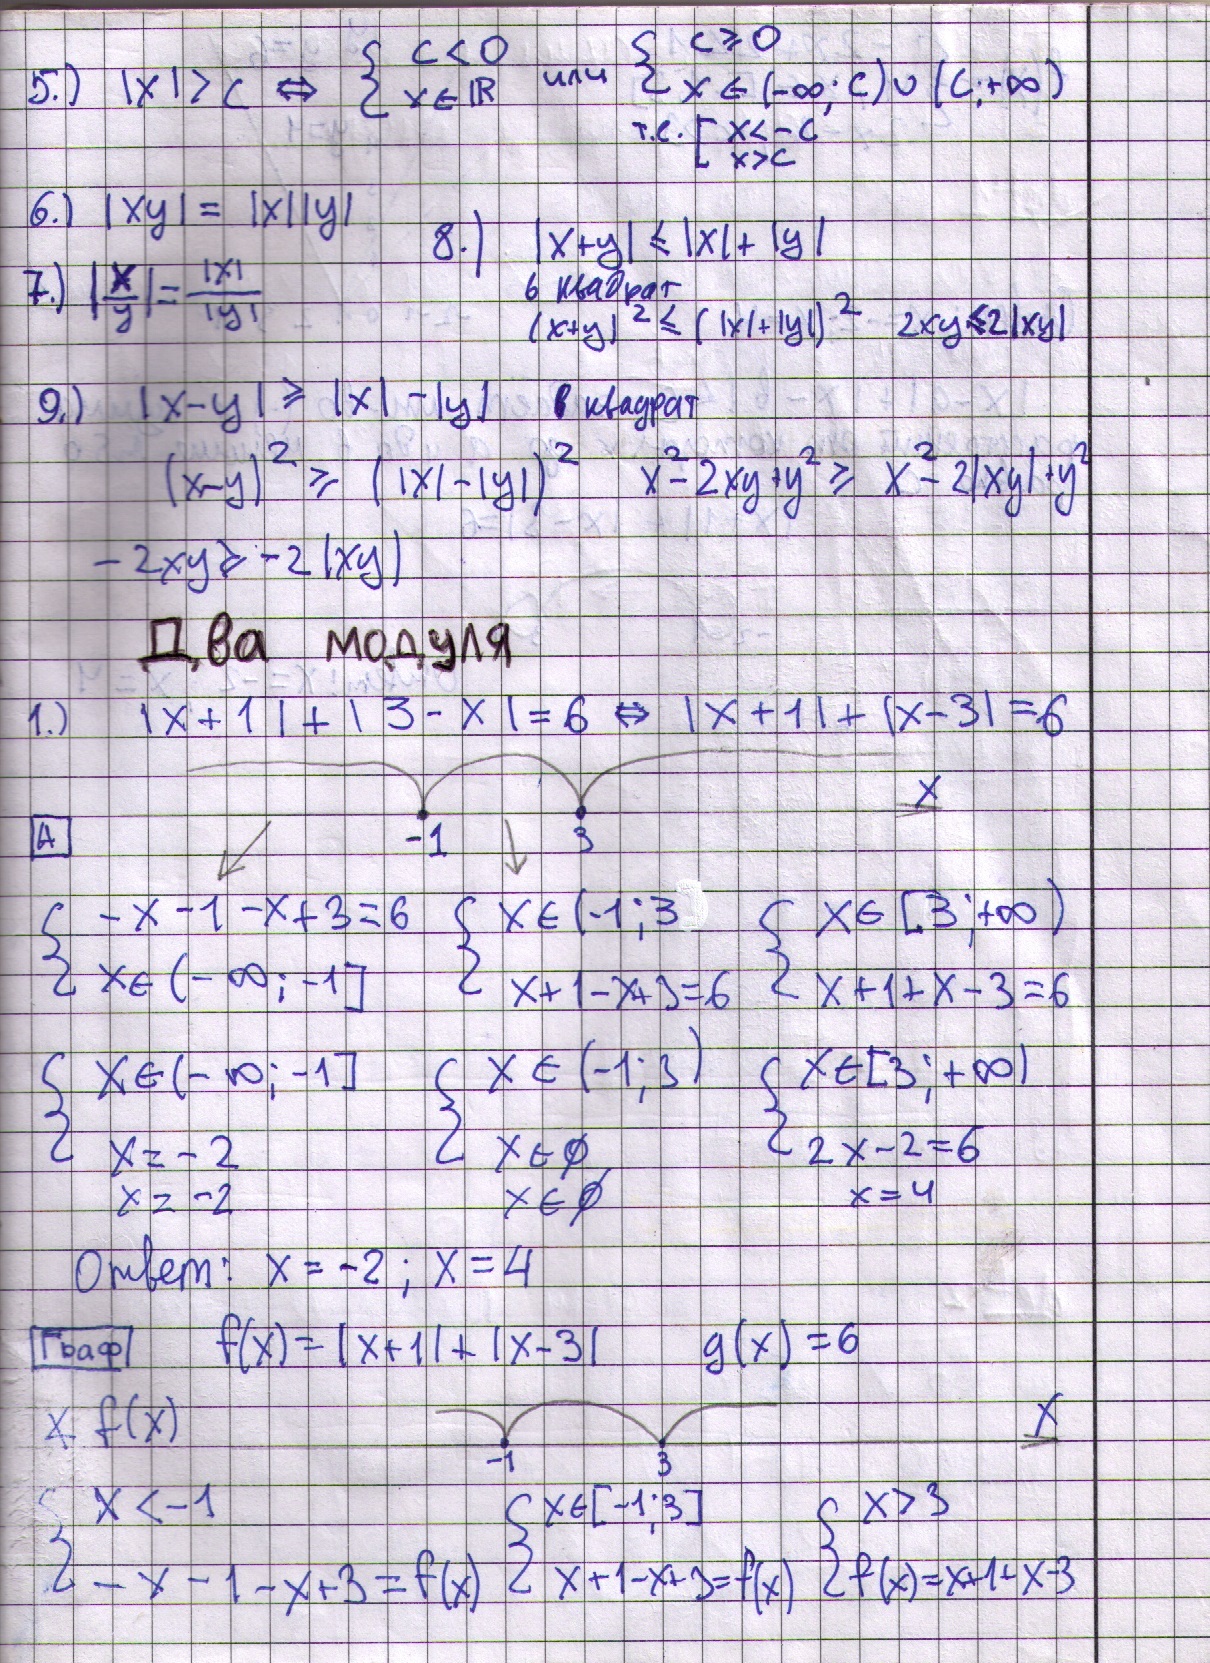 5.) |x| > c ⇔ { c < 0 x ∈ ℝ или { c ⩾ 0 x ∈ (-∞; c) ∪ (c; +∞)
т.е. [ x < -c
x > c
6.) |xy| = |x||y|
7.) |x/y| = |x|/|y|
8.) |x+y| ⩽ |x| + |y|
в квадрат
(x+y)² ⩽ (|x|+|y|)² 2xy ⩽ 2|xy|
9.) |x-y| ⩾ |x| - |y| в квадрат
(x-y)² ⩾ (|x|-|y|)² x²-2xy+y² ⩾ x²-2|xy|+y²
-2xy ⩾ -2|xy|
Два модуля
1.) |x+1|+|3-x|=6 ⇔ |x+1|+|x-3|=6
x
А -1 3
{ -x-1-x+3=6 { x∈(-1;3 { x∈[3;+∞)
x∈(-∞;-1] x+1-x+3=6 x+1+x-3=6
{ x∈(-∞;-1] { x∈(-1;3) { x∈[3;+∞)
x=-2 x∈∅ 2x-2=6
x=-2 x∈∅ x=4
Ответ: x=-2; x=4
Граф f(x)=|x+1|+|x-3| g(x)=6
x f(x) x
-1 3
{ x<-1 { x∈[-1;3] { x>3
-x-1-x+3=f(x) x+1-x+3=f(x) f(x)=x+1+x-3